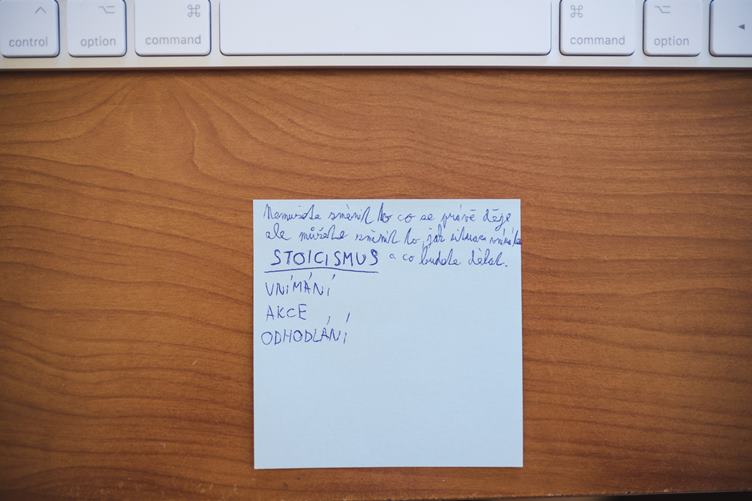 control
option
command
command
option
Nemůžete změnit to co se právě děje
ale můžete změnit to, jak situaci vnímáte
STOICISMUS a co budete dělat.
VNÍMÁNÍ
AKCE
ODHODLÁNÍ